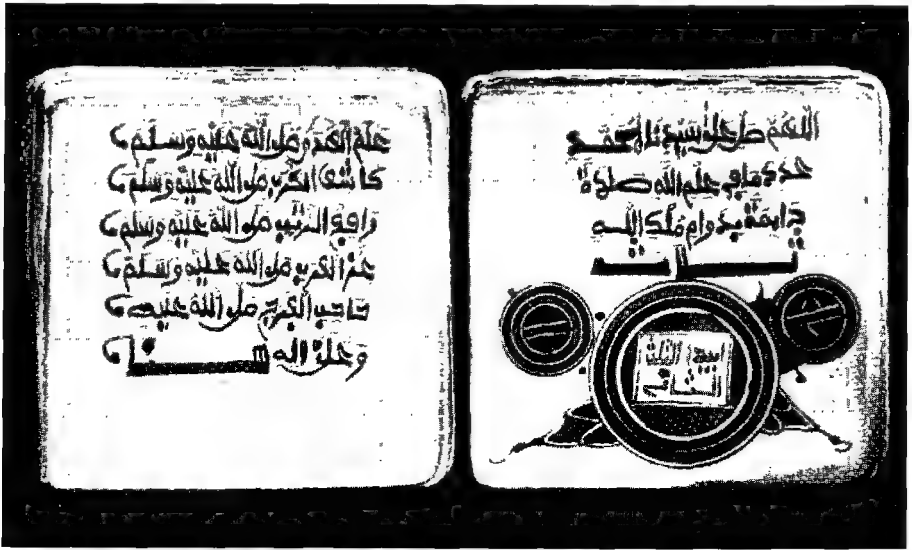 اللَّهُمَّ صَلِّ عَلَى سَيِّدِنَا مُحَمَّد
عَدَدَ مَا فِي عِلْمِ اللَّهِ صَلَاةً
دَايِمَةً بِدَوَامِ مُلْكِ اللَّهِ
الثلث
عَلَمُ الْهُدَى صَلَّى اللَّهُ عَلَيْهِ وَسَلَّمَ
كَاشِفُ الْكُرَبِ صَلَّى اللَّهُ عَلَيْهِ وَسَلَّمَ
رَافِعُ الرُّتَبِ صَلَّى اللَّهُ عَلَيْهِ وَسَلَّمَ
عِزُّ الْعَرَبِ صَلَّى اللَّهُ عَلَيْهِ وَسَلَّمَ
صَاحِبُ الْفَرَجِ صَلَّى اللَّهُ عَلَيْهِ
وَعَلَى الِهِ